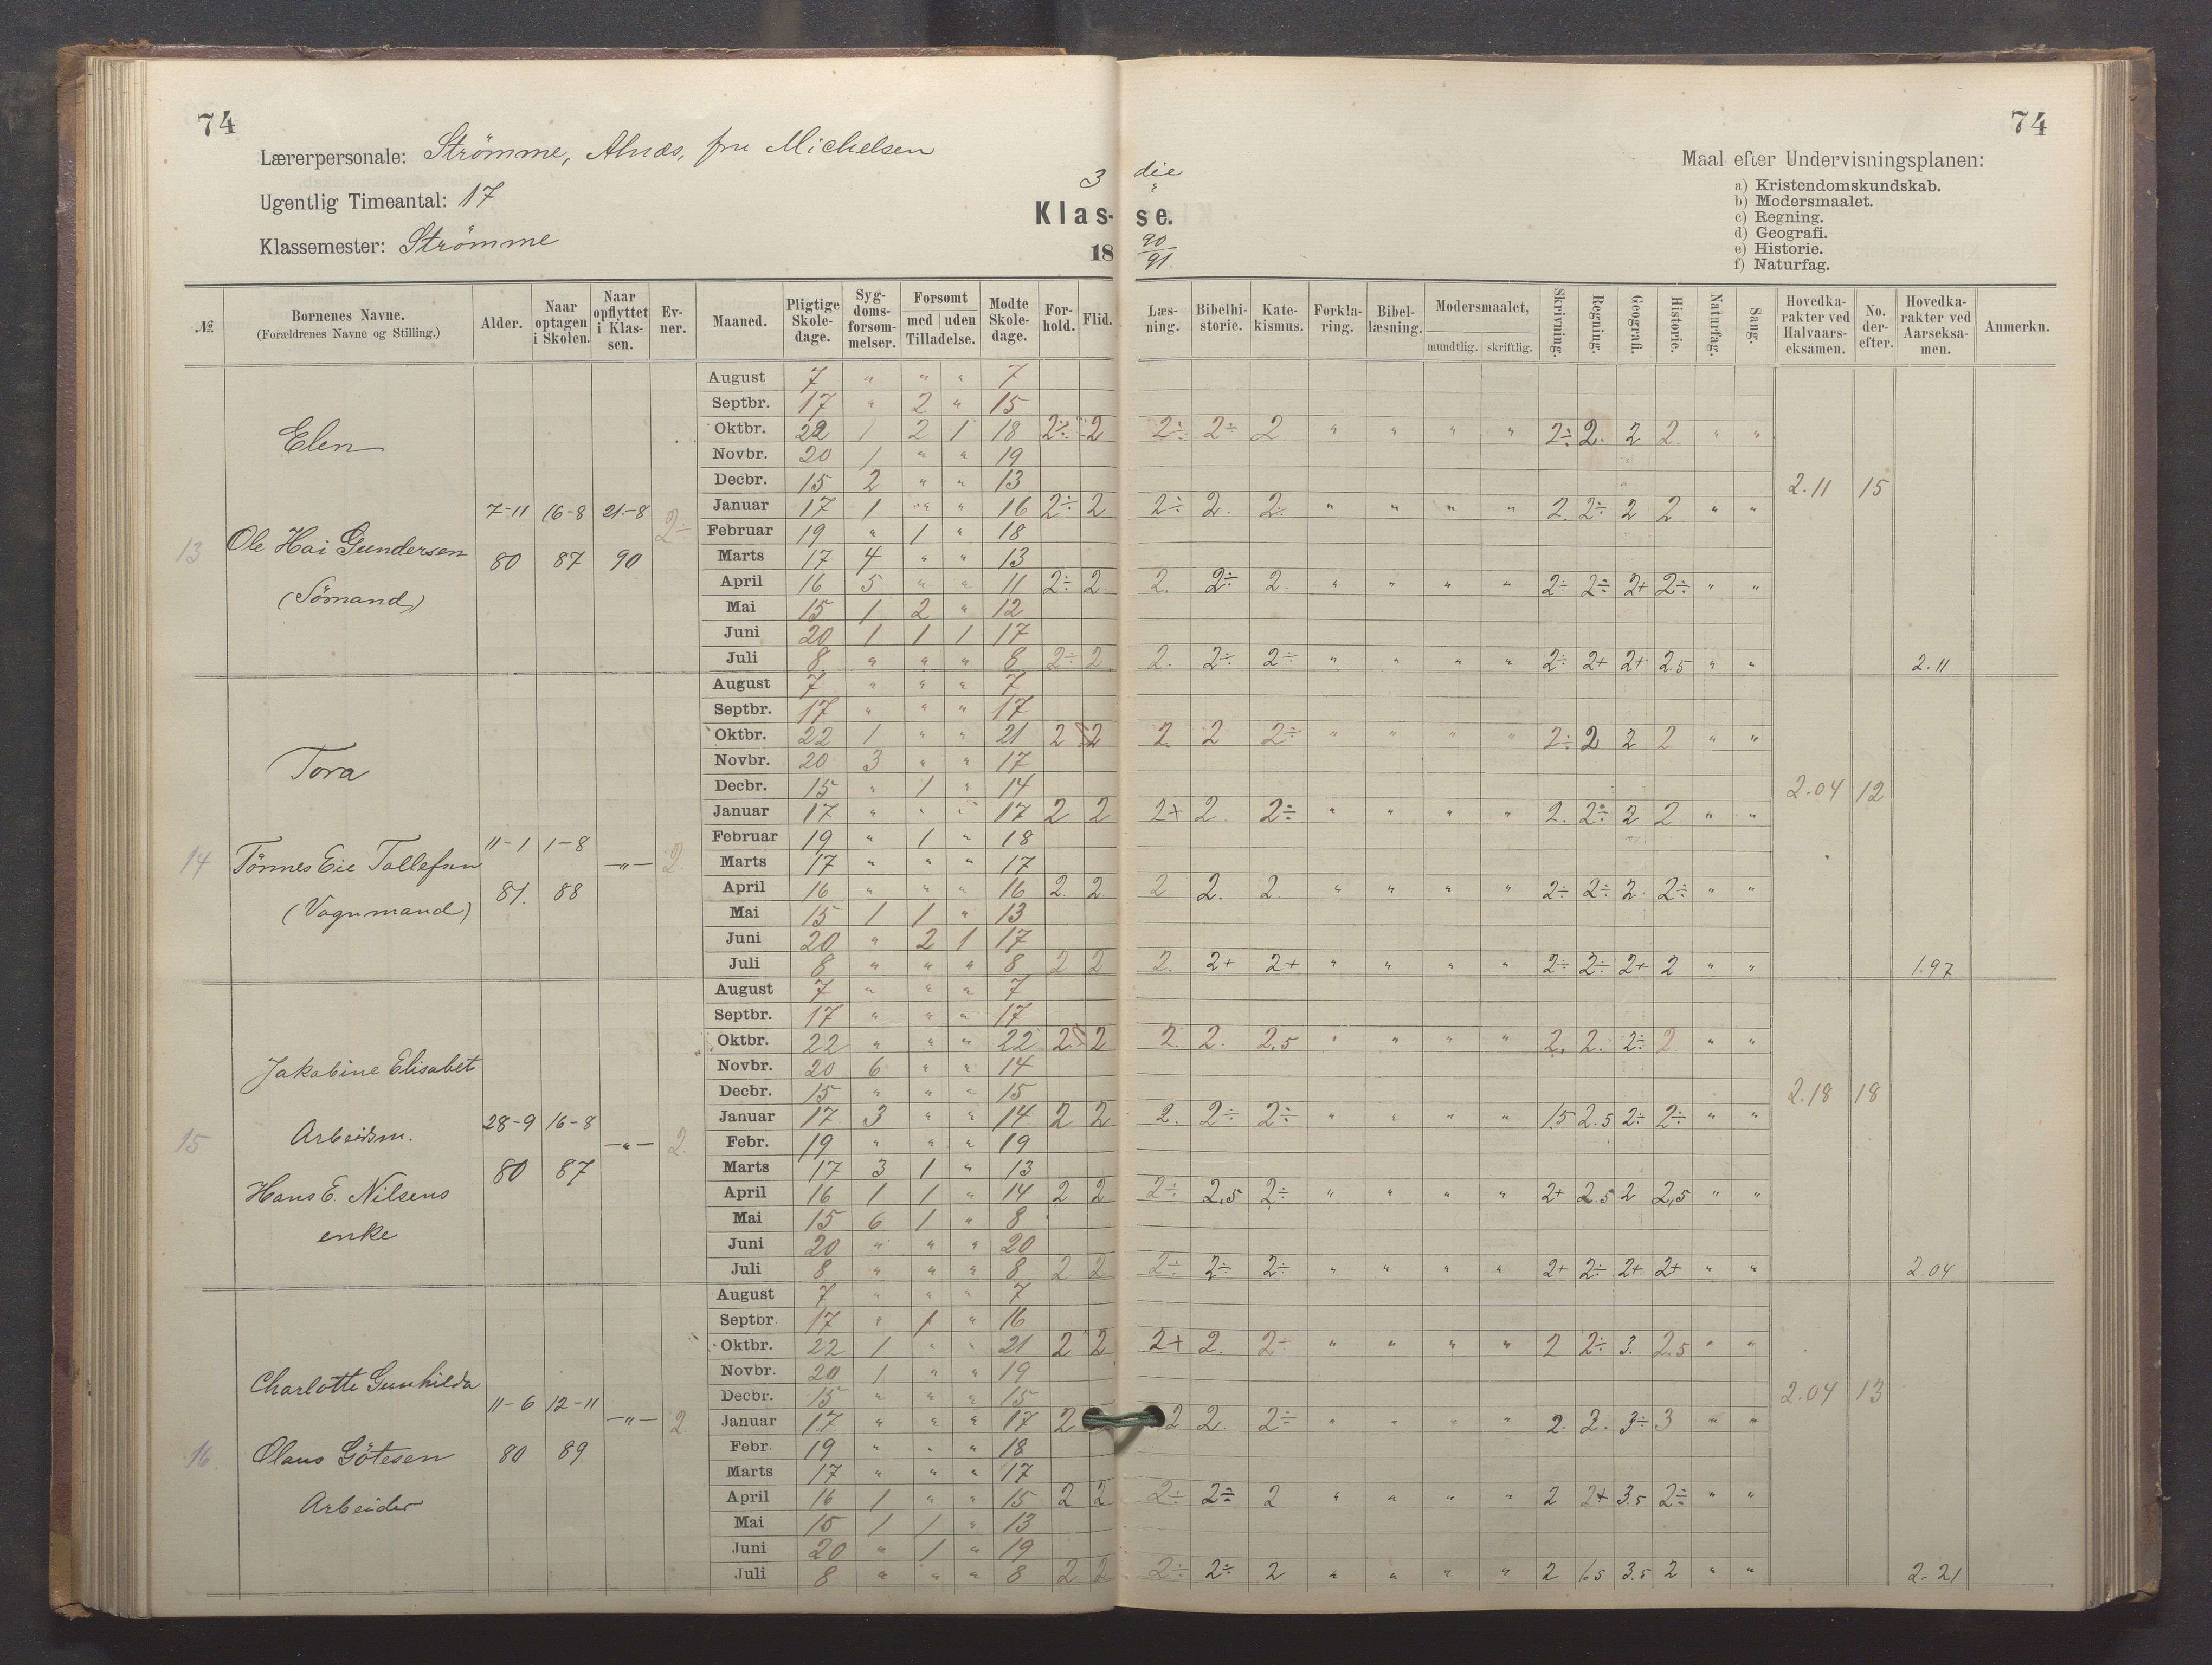 74
74
Lærerpersonale: Strömme, Alnæs, fru Michelsen
Ugentlig Timeantal: 17
Klassemester: Strömme
3 die
Klas- se.
18 90/91.
Maal efter Undervisningsplanen:
a) Kristendomskundskab.
b) Modersmaalet.
c) Regning.
d) Geografi.
e) Historie.
f) Naturfag.
№. Bornenes Navne. (Forældrenes Navne og Stilling.) Alder. Naar optagen i Skolen. Naar opflyttet i Klassen. Evner. Maaned. Pligtige Skoledage. Sygdomsforsømmelser. Forsømt med uden Tilladelse. Mødte Skoledage. Forhold. Flid. Læsning. Bibelhistorie. Katekismus. Forklaring. Bibellæsning. Modersmaalet, mundtlig. skriftlig. Skrivning. Regning. Geografi. Historie. Naturfag. Sang. Hovedkarakter ved Halvaarseksamen. No. derefter. Hovedkarakter ved Aarseksamen. Anmerkn.
13 Elen
Ole Hai Gundersen
(Sömand)
7-11 80 16-8 87 21-8 90 2÷
August 7 " " " 7
Septbr. 17 " 2 " 15
Oktbr. 22 1 2 1 18 2÷ 2 2÷ 2÷ 2 " " " " 2÷ 2. 2 2. " "
Novbr. 20 1 " " 19
Decbr. 15 2 " " 13 2.11 15
Januar 17 1 " " 16 2÷ 2 2÷ 2. 2. " " " " 2. 2÷ 2 2 " "
Februar 19 " 1 " 18
Marts 17 4 " " 13
April 16 5 " " 11 2÷ 2. 2. 2÷ 2. " " " " 2÷ 2÷ 2+ 2÷ " "
Mai 15 1 2 " 12
Juni 20 1 1 1 17
Juli 8 " " " 8 2÷ 2 2. 2÷ 2÷ " " " " 2÷ 2+ 2+ 2.5 " " 2.11
14 Tora
Tönnes Eie Tollefsen
(Vognmand)
11-1 81. 1-8 88 —"— 2.
August 7 " " " 7
Septbr. 17 " " " 17
Oktbr. 22 1 " " 21 2 2 2. 2 2÷ " " " " 2÷ 2 2 2 " "
Novbr. 20 3 " " 17
Decbr. 15 " 1 " 14 2.04 12
Januar 17 " " " 17 2 2 2+ 2 2÷ " " " " 2. 2÷ 2 2 " "
Februar 19 " 1 " 18
Marts 17 " " " 17
April 16 " " " 16 2. 2. 2 2. 2 " " " " 2÷ 2÷ 2. 2÷ " "
Mai 15 1 1 " 13
Juni 20 " 2 1 17
Juli 8 " " " 8 2 2 2. 2+ 2+ " " " " 2÷ 2÷ 2+ 2 " " 1.97
15 Jakobine Elisabet
Arbeidsm.
Hans E. Nilsens
enke
28-9 80 16-8 87 —"— 2.
August 7 " " " 7
Septbr. 17 " " " 17
Oktbr. 22 " " " 22 2 2 2. 2. 2.5 " " " " 2. 2. 2÷ 2 " "
Novbr. 20 6 " " 14
Decbr. 15 " " " 15 2.18 18
Januar 17 3 " " 14 2 2 2. 2÷ 2÷ " " " " 1.5 2.5 2÷ 2÷ " "
Febr. 19 " " " 19
Marts 17 3 1 " 13
April 16 1 1 " 14 2 2 2÷ 2.5 2÷ " " " " 2+ 2.5 2 2.5 " "
Mai 15 6 1 " 8
Juni 20 " " " 20
Juli 8 " " " 8 2 2 2÷ 2÷ 2÷ " " " " 2+ 2÷ 2+ 2+ " " 2.04
16 Charlotte Gunhilda
Olaus Götesen
Arbeider
11-6 80 12-11 89 —"— 2.
August 7 " " " 7
Septbr 17 " 1 " 16
Oktbr. 22 1 " " 21 2 2 2+ 2. 2÷ " " " " 2 2÷ 3. 2.5 " "
Novbr. 20 1 " " 19
Decbr. 15 " " " 15 2.04 13
Januar 17 " " " 17 2 2 2. 2÷ " " " " 2. 2. 3÷ 3 " "
Febr. 19 " " " 18
Marts 17 " " " 17
April 16 1 " " 15 2 2 2÷ 2÷ 2 " " " " 2 2+ 3.5 2÷ " "
Mai 15 1 1 " 13
Juni 20 " 1 " 19
Juli 8 " " " 8 2 2 2÷ 2÷ 2 " " " " 2 1.5 3.5 2 " " 2.21